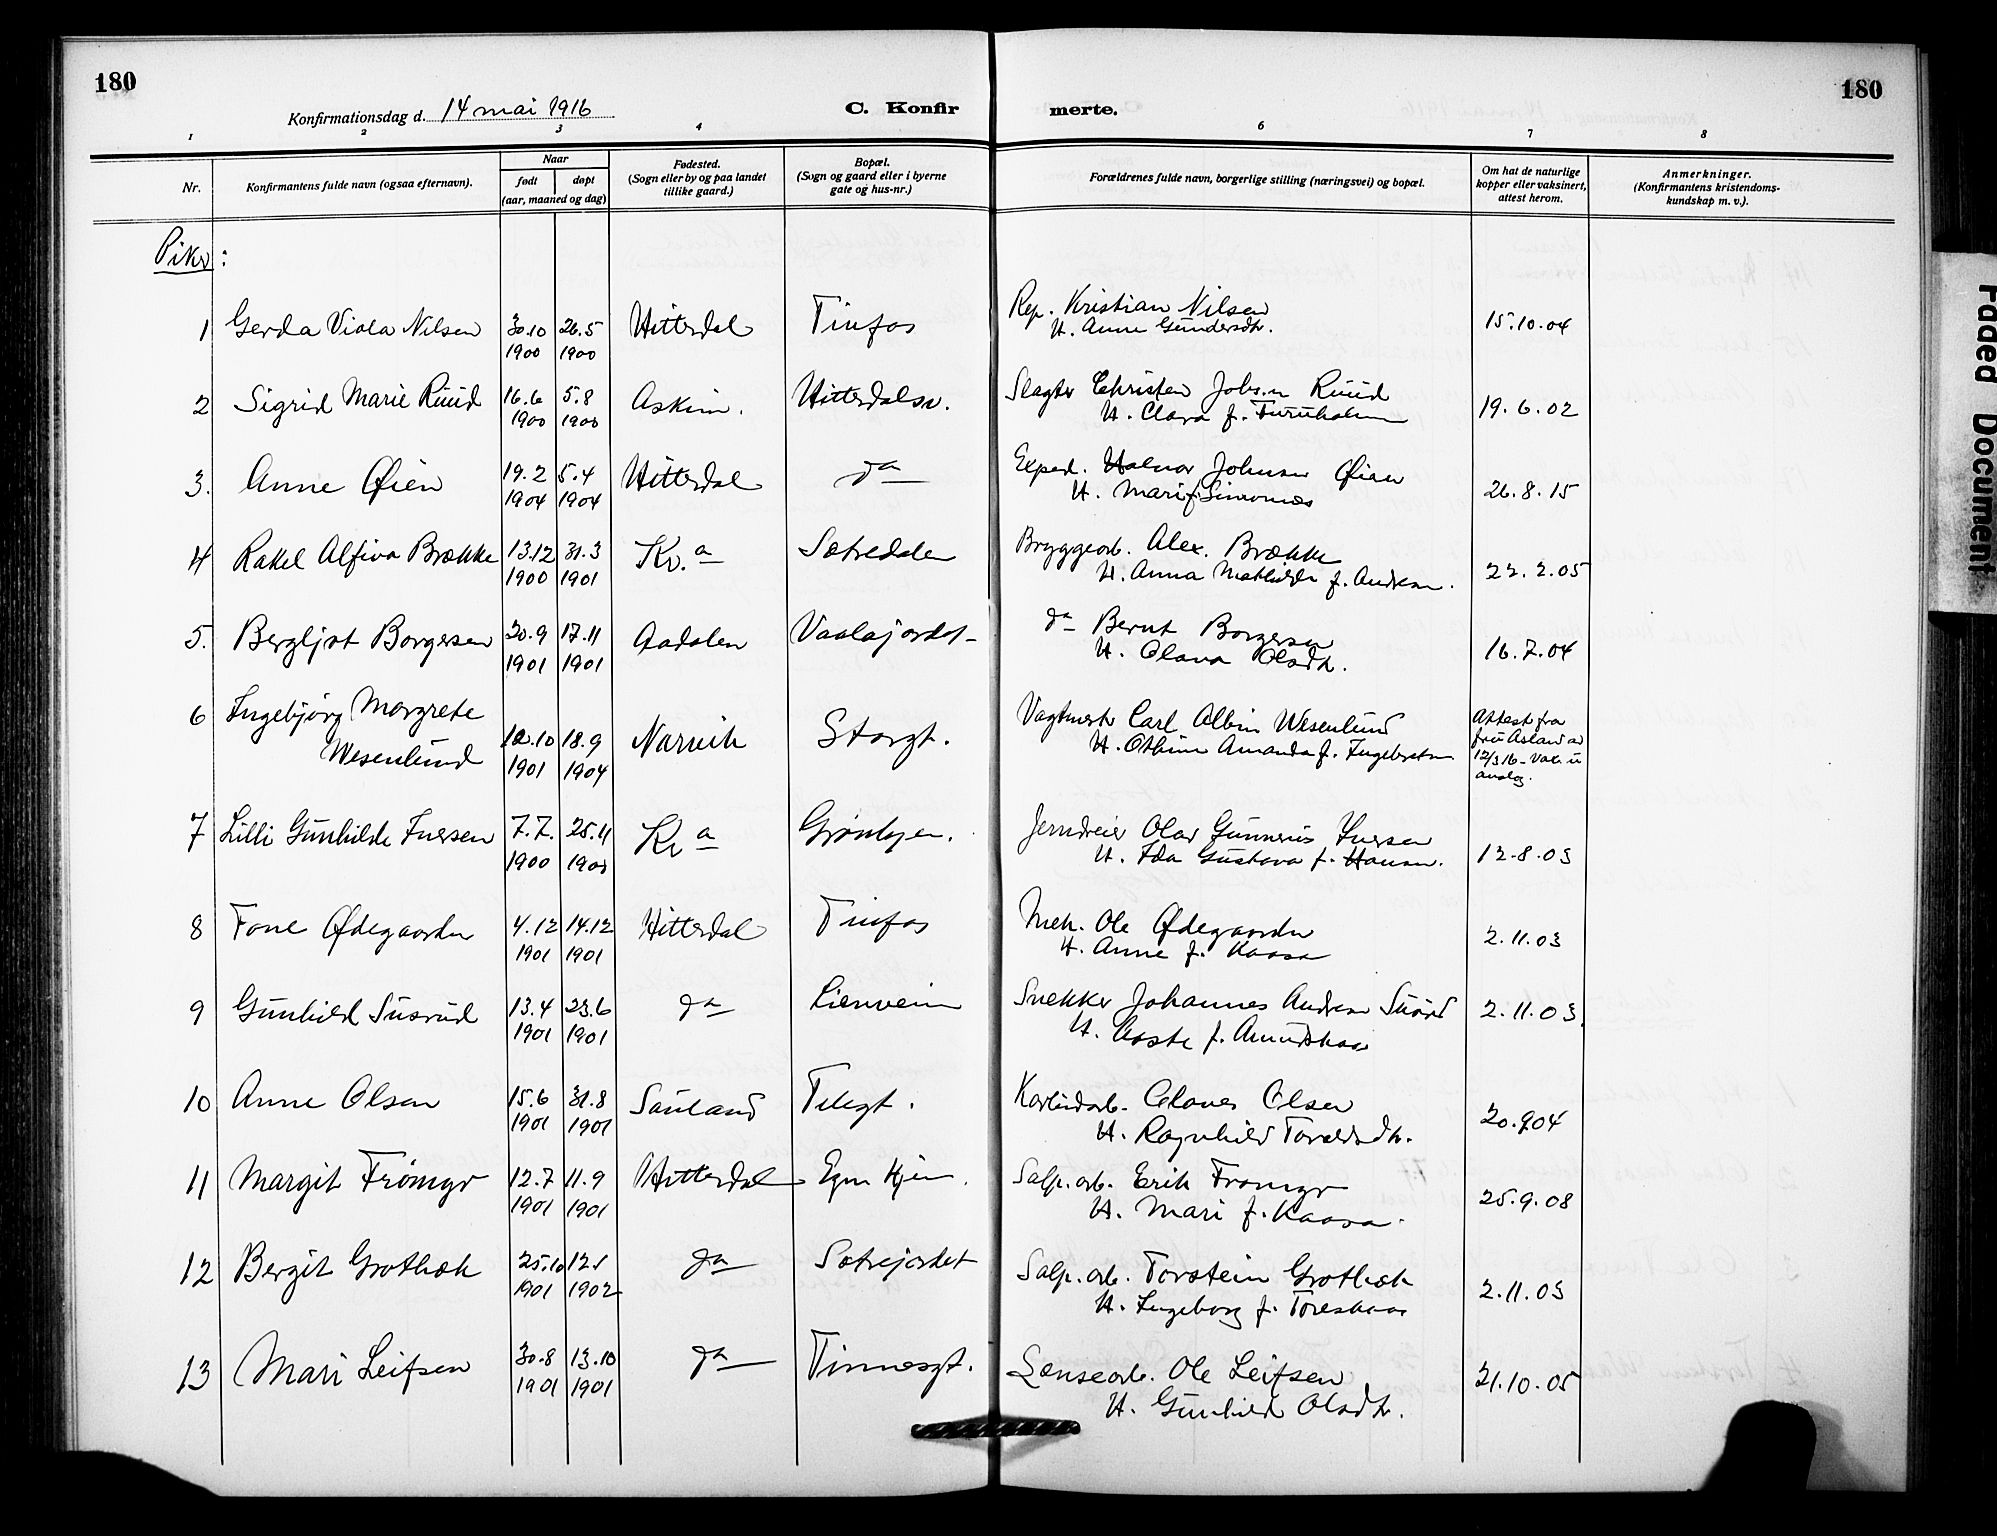 180
180
Konfirmationsdag d. 14 mai 1916
C. Konfir
merte.
1 2 3 4 6 7 8
Nr.
Konfirmantens fulde navn (ogsaa efternavn).
Naar
født døpt
(aar, maaned og dag)
Fødested.
(Sogn eller by og paa landet
tillike gaard.)
Bopæl.
(Sogn og gaard eller i byerne
gate og hus-nr.)
Forældrenes fulde navn, borgerlige stilling (næringsvei) og bopæl.
Om hat de naturlige
kopper eller vaksinert,
attest herom.
Anmerkninger.
(Konfirmantens kristendoms-
kundskap m. v.).
Piker:
1 Gerda Viola Nilsen 30.10 26.5 Hitterdal Tinfos Rep. Kristian Nilsen 15.10.04
1900 1900 H. Anne Gundersdtr.
2 Sigrid Marie Ruud 16.6 5.8 Askim. Hitterdalsv. Slagter Christen Johsn Ruud 19.6.02
1900 1900 H. Clara f. Furuholmen
3. Anne Øien 19.2 5.4 Hitterdal do Exped. Halvor Johnsen Øien 26.8.15
1904 1904 H. Mari f. Simones
4 Rakel Alfiva Brække 13.12 31.3 Kr.a Sætredalen Bryggearb. Alex. Brække 22.2.05
1900 1901 H. Anna Mathilde f. Andersen.
5. Bergljot Borgersen 20.9 17.11 Aadalen Vaalajordet do Bernt Borgersen 16.7.04
1901 1901 H. Olava Olsdtr.
6 Ingebjørg Margrete
Wesenlund 12.10 18.9 Narvik Storgt. Vagtmestr Carl Albin Wesenlund Attest fra
1901 1904 H. Othine Amanda f. Ingebretsen fru Asland av
12/3 16 - vax. u
anslag.
7 Lilli Gunhilde Iversen 7.7. 25.11 Kr a Grønbyen. Jerndreier Olav Gunnerius Iversen 12.8.03
1900 1900 H. Ida Gustava f. Hansen.
8 Tone Ødegaarden 4.12 14.12 Hitterdal Tinfos Mek. Ole Ødegaarden 2.11.03
1901 1901 H. Anne f. Kaasa
9 Gunhild Susrud 13.4 23.6 do Lienveien Snekker Johannes Andersen 2.11.03.
1901 1901 H. Aaste f. Amundskaas
10 Anne Olsen 15.6 31.8 Sauland Telegt. Karbidarb. Olaves Olsen 20.9.04
1901 1901 H. Ragnhild Toraldsdtr.
11 Margit Frømyr 12.7 11.9 Hitterdal Egne Hjem. Salp. arb. Erik Fromyr 25.9.08
1901 1901 H. Mari f. Kaasa.
12 Bergit Grotbæk 25.10 12.1 do Sætrejordet Salp. arb. Torstein Grotbæk 2.11.03
1901 1902 H. Ingeborg f. Toreskaas
13 Mari Leifsen 30.8 13.10 do Tinnesgt. Lænsearb. Ole Leifsen 21.10.05
1901 1901 H. Gunhild Olsdtr.
Faded Document